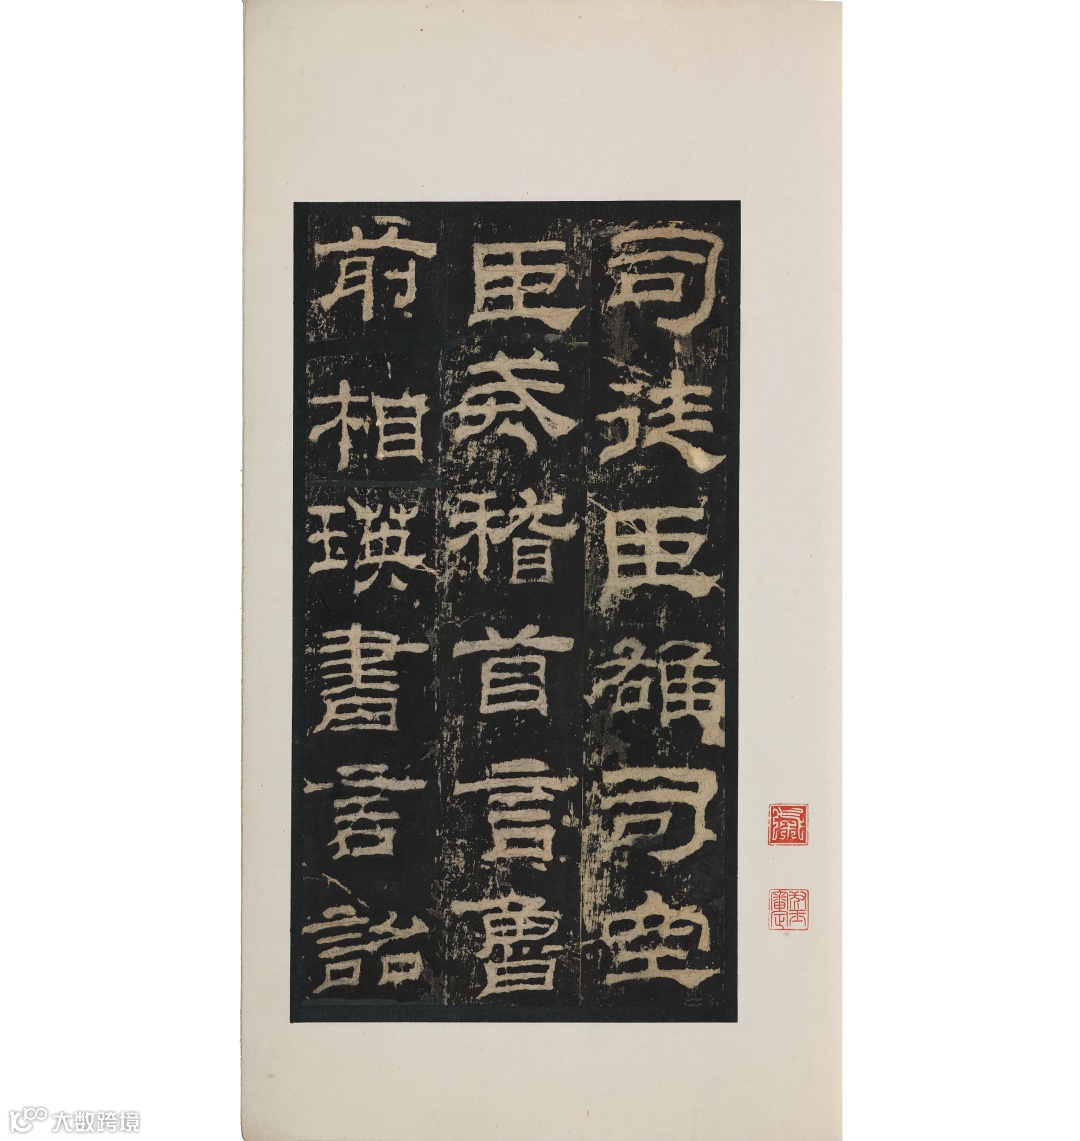 司徒臣雄司空
臣戒稽首言魯
前相瑛書言詔
大数跨境